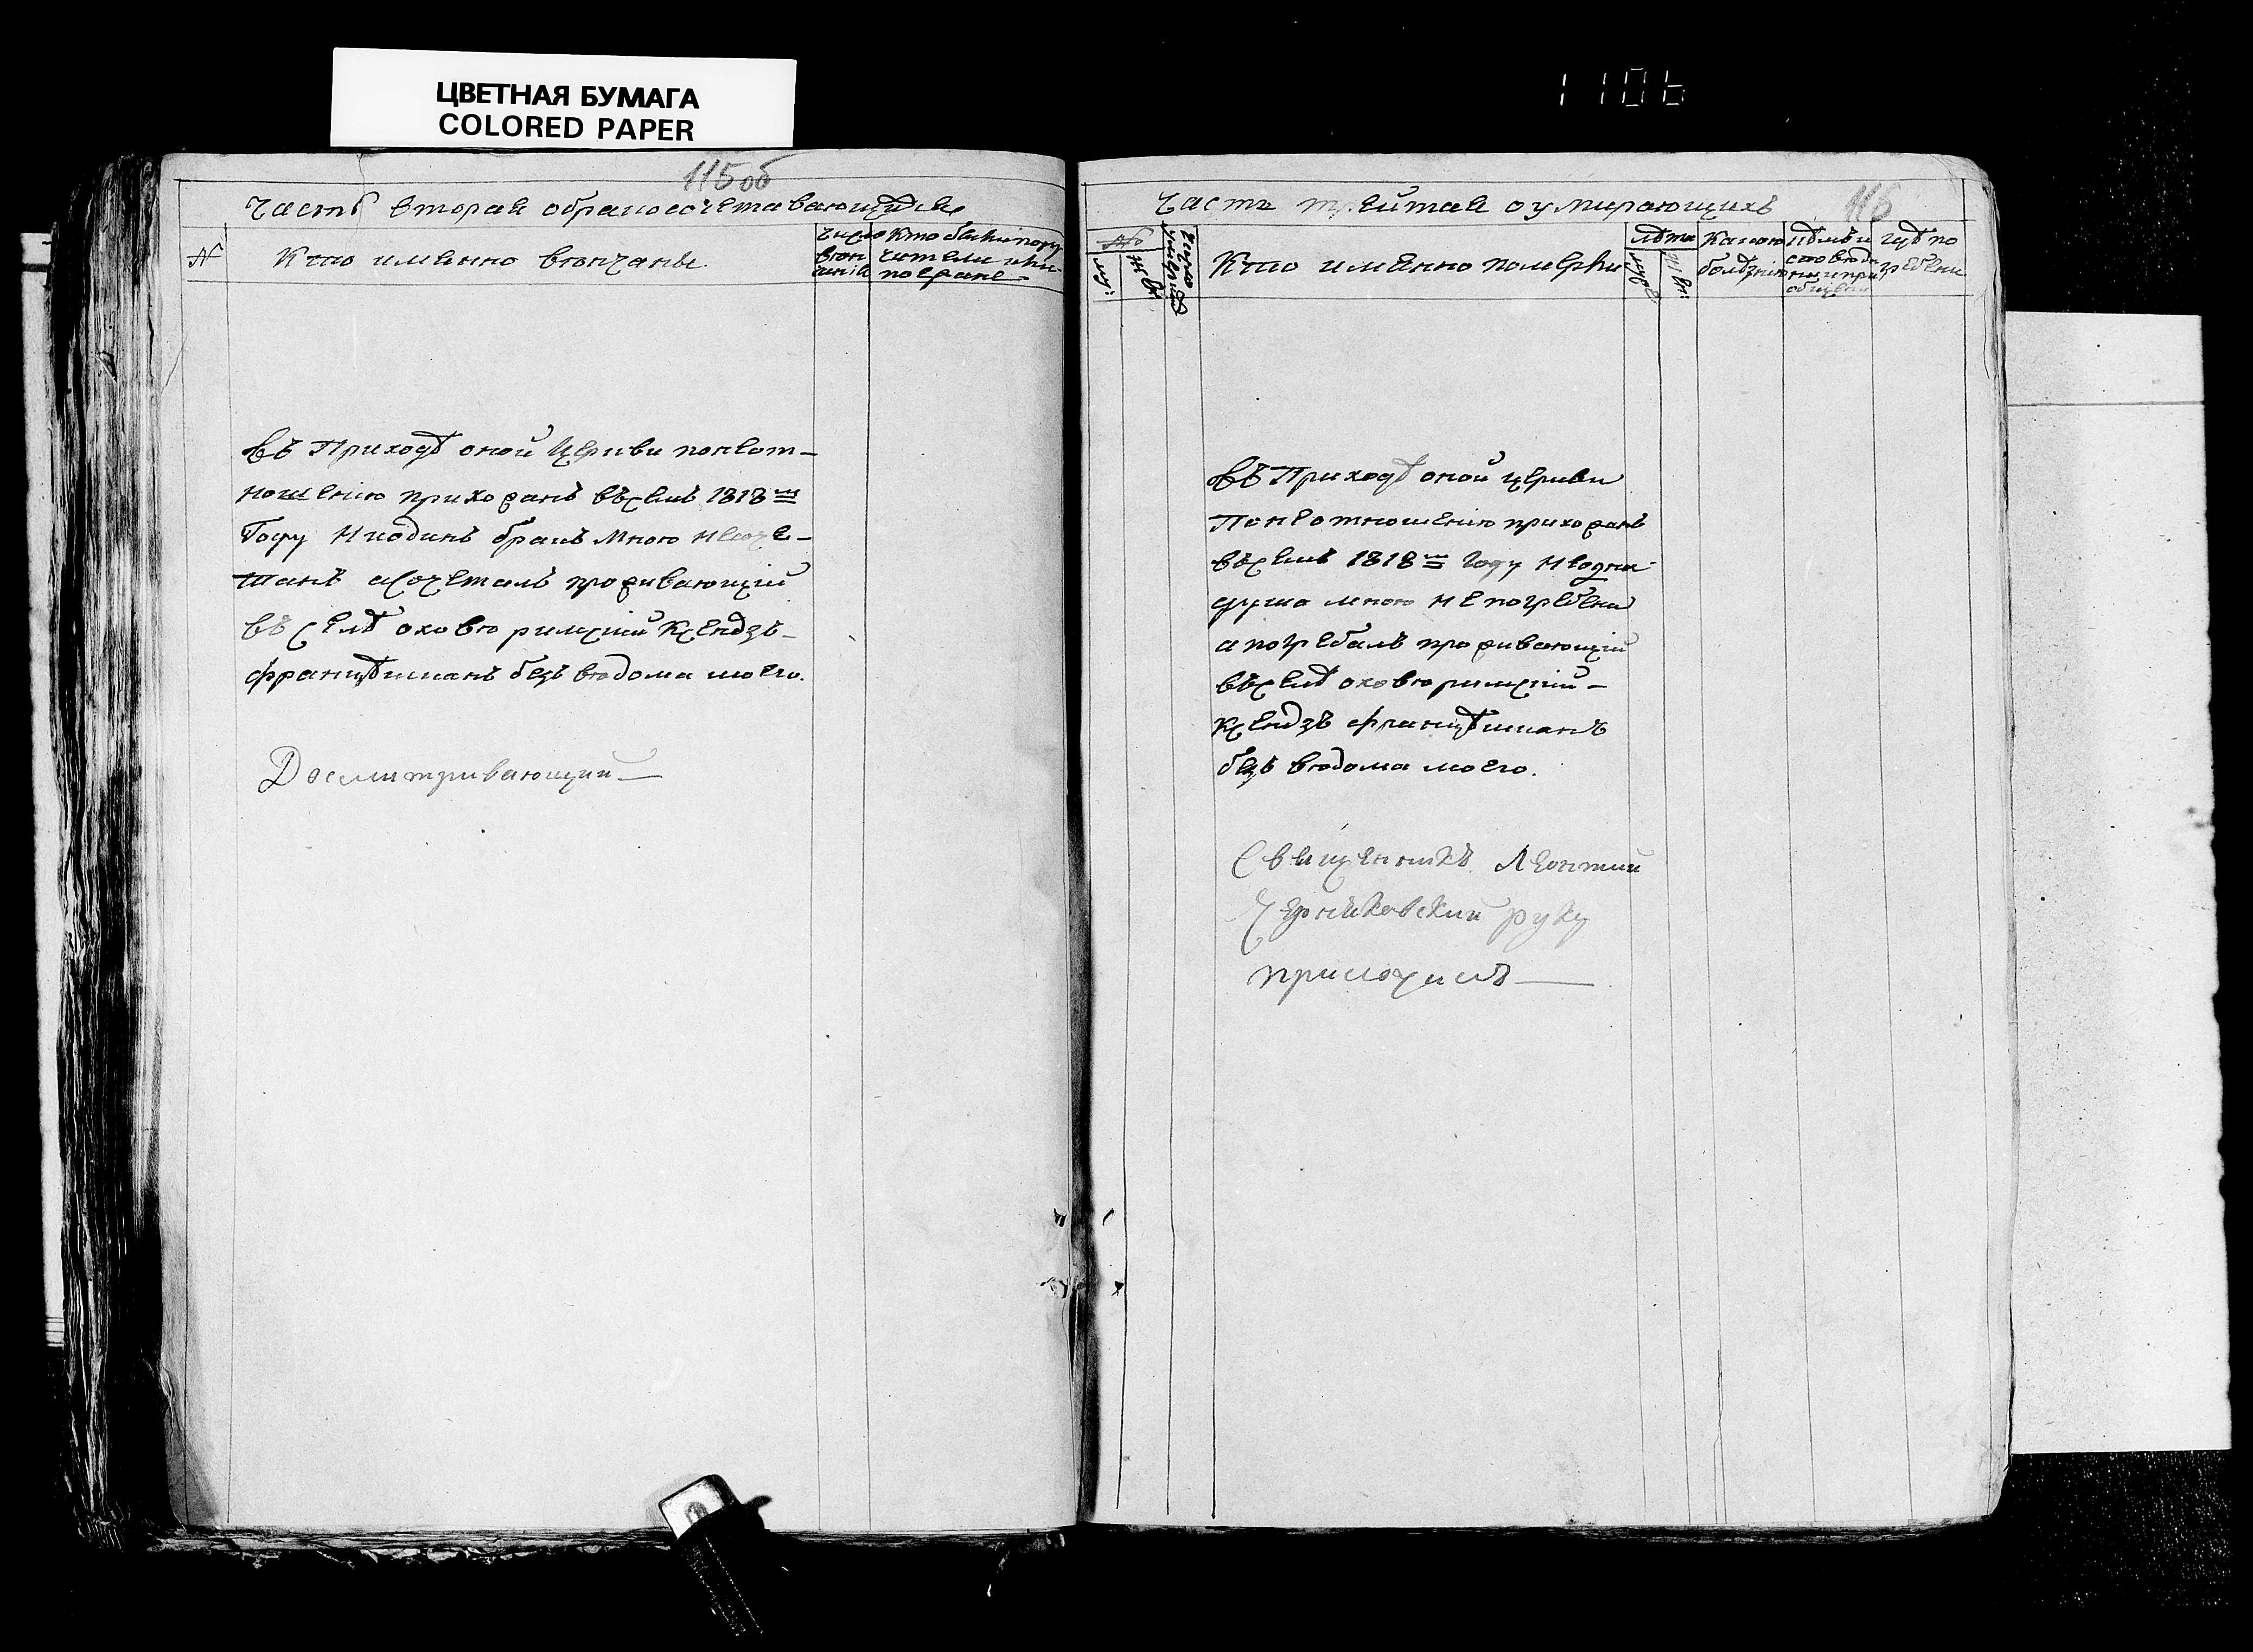 ЦВЕТНАЯ БУМАГА
COLORED PAPER
1106
115 об
Часть вторая обракосочетавающихся
№
Кто имянно венчаны
число венчания
Кто были поручители или поезжане
Въ Приходѣ оной Церкви понеот-
ношению прихожанъ въсемъ 1818 м
Году Ниодинъ бракъ мною несоче-
танъ асочеталъ проживающій
въ селѣ
римскій Ксендзъ-
францѣшканъ безъ вѣдома моего.
Досматривающий
Часть трейтая оумирающихъ
116
№
муж:
жен:
число умершихъ
Кто имянно померли
лѣта
муж:
жен:
Какою болѣзнию
гдѣ погребены
Въ Приходѣ оной церкви
Понеотношению прихожанъ
въсемъ 1818 м Году неодна
душа мною не погребена
а погребалъ проживающій
въселѣ
римскій -
Ксендзъ францѣшканъ
безъ вѣдома моего.
Священникъ Леонтий
руку
приложилъ